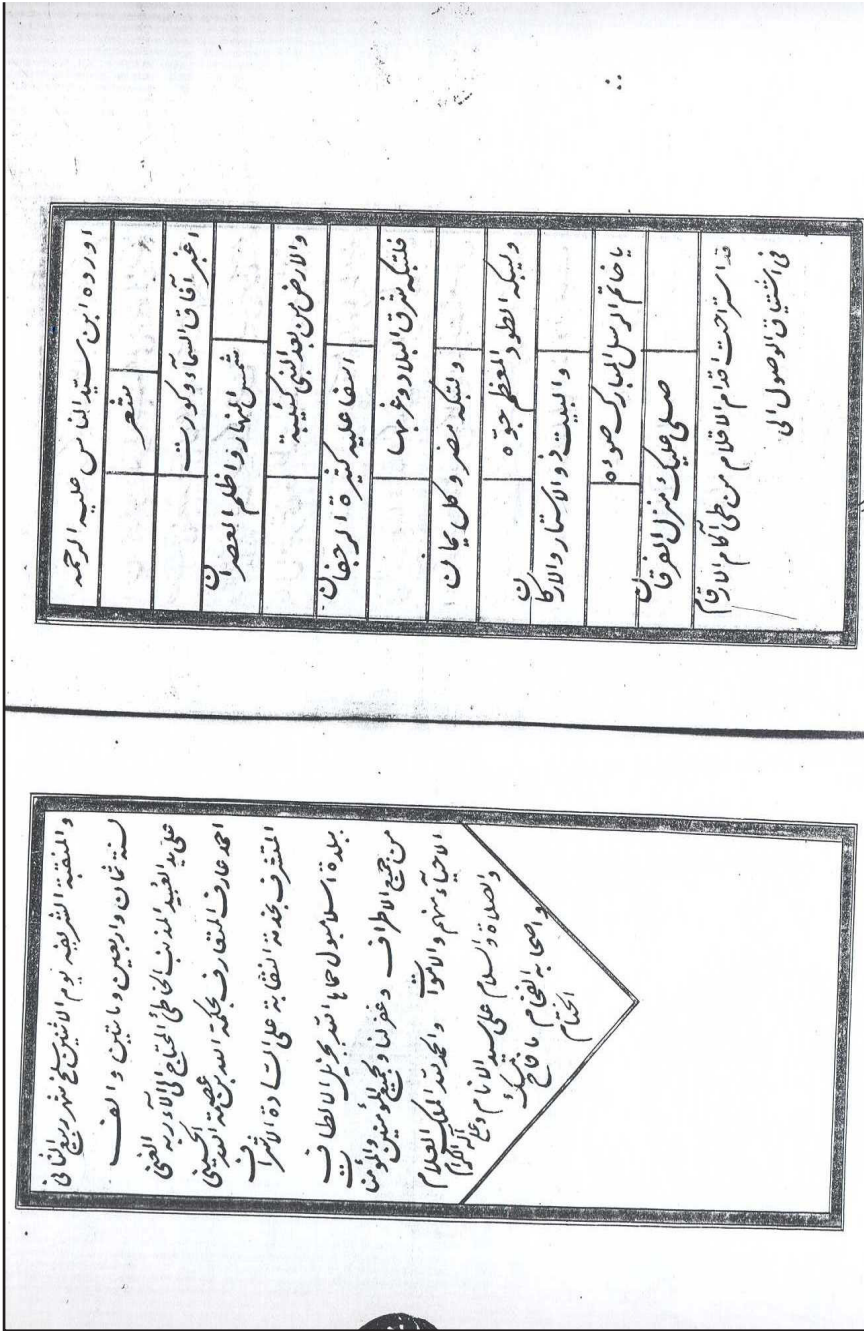 اورده ابن سيد الناس عليه الرحمه
شعر
اغبر آفاق السمآء وكورت
شمس النهار واظلم العصران
والارض من بعد النبي كئيبة
اسفا عليه كثيرة الرجفان
فلتبكه شرق البلاد وغربها
ولتبكه مضر وكل يمان
وليبكه الطود المعظم جوه
والبيت ذو الاستار والاركان
يا خاتم الرسل المبارك صوءه
صلى عليك منزل الفرقان
قد استراحت اقدام الاقلام من طي آكام الارقام
في اشتياق الوصول الى
والمنقبة الشريفه يوم الاثنين سلخ شهر ربيع الثاني
لسنة ثمان واربعين ومايتين والف
على يد العبيد المذنب الخاطئ المحتاج الى آلاء ربه الغني
احمد عارف المتعارف بحكمة الله بن عصمة الله الحسيني
المتشرف بخدمة النقابة على السادة الاشراف
ببلدة اسلامبول حماها الله بجزيل الالطاف
من جميع الاطراف وغفر لنا ولجميع المؤمنين والمؤمنات
الاحيآء منهم والاموات والحمد لله الملك العلام
والصلاة والسلام على سيد الانام وعلى آله الكرام
واصحابه الفخام ما فاح مسك
الختام